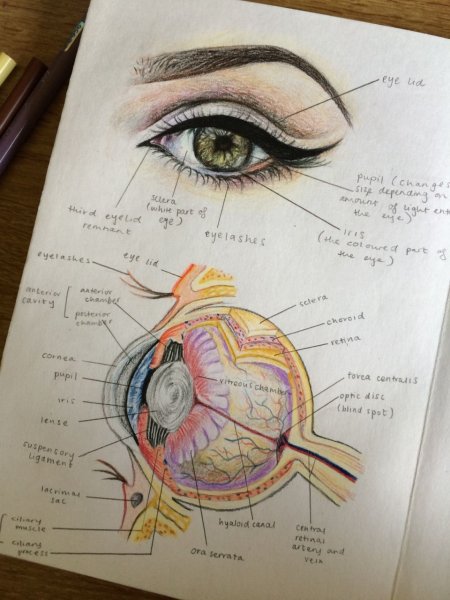 eye lid
pupil (changes
size depending on
amount of light
the eye)
iris
(the coloured part of
the eye)
third eyelid
remnant
sclera
(white part of
eye)
eyelashes
eyelashes
eye lid
anterior
cavity
anterior
chamber
posterior
chamber
cornea
pupil
iris
lense
suspensory
ligament
lacrimal
sac
ciliary
muscle
ciliary
process
sclera
choroid
retina
vitreous chamber
fovea centralis
optic disc
(blind spot)
hyaloid canal
ora serrata
central
retinal
artery and
vein